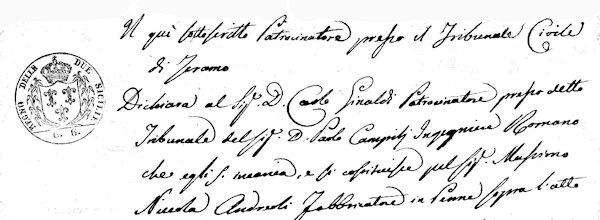 Il quì sottoscritto Patrocinatore presso il Tribunale Civile
di Teramo
Dichiara al Sig. D. Carlo Ginaldi Patrocinatore presso detto
Tribunale del Sig. D. Paolo Campilj Ingegniere Romano
che egli e si costituisce pel Sig. Massimo
Nicola Andreoli Fabbricatore in Penne sopra l'atto
REGNO DELLE DUE SICILIE
G. 6.